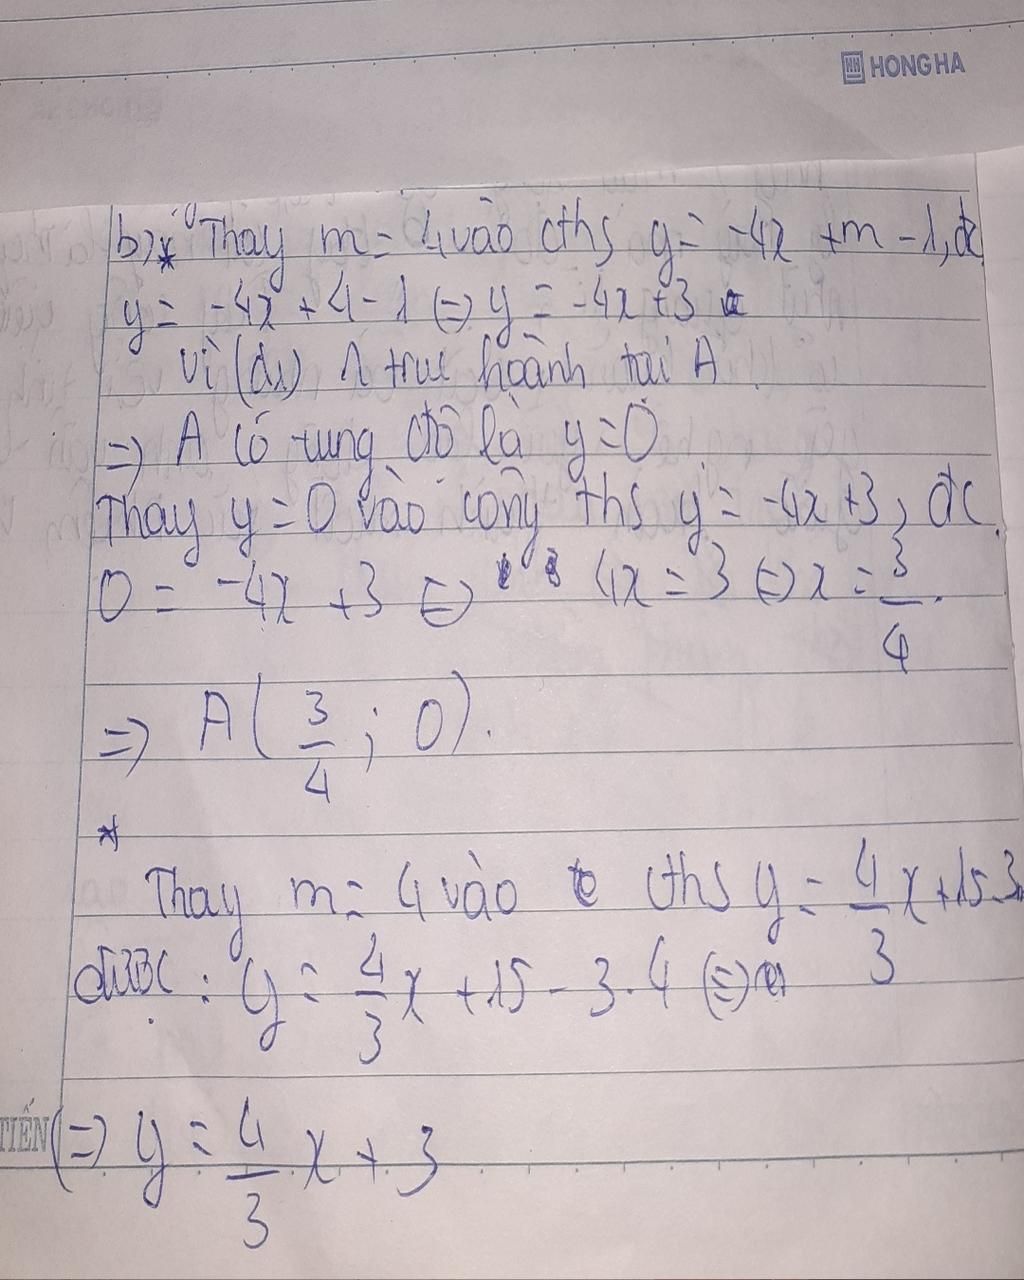 HONG HA
b) * Thay m = 4 vào cths y = -4x + m - 1, đc
y = -4x + 4 - 1 (=) y = -4x + 3
Vì (d1) ∩ trục hoành tại A
=> A có tung độ là y = 0
Thay y = 0 vào công ths y = -4x + 3, đc
0 = -4x + 3 (=) 4x = 3 (=) x = 3/4.
=> A(3/4; 0).
*
Thay m = 4 vào cths y = 4/3 x + 15 - 3m
được: y = 4/3 x + 15 - 3.4 (=)
TIẾN (=) y = 4/3 x + 3